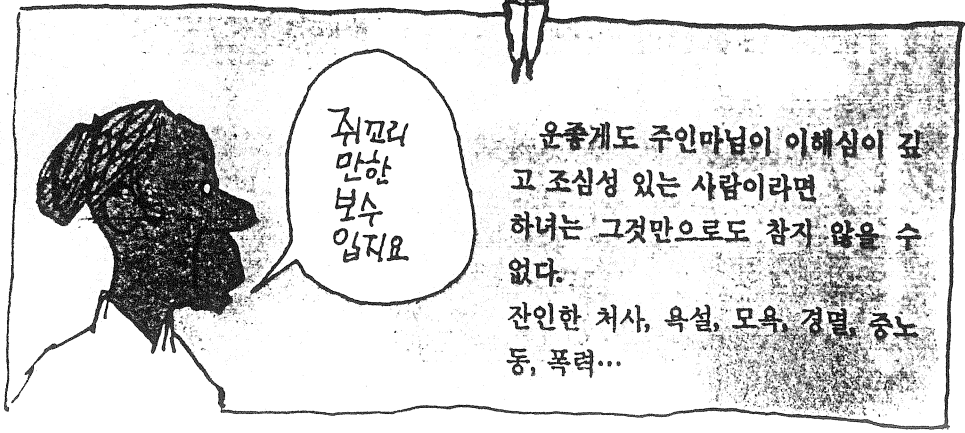 쥐꼬리
만한
보수
입지요
운좋게도 주인마님이 이해심이 깊
고 조심성 있는 사람이라면
하녀는 그것만으로도 참지 않을 수
없다.
잔인한 처사, 욕설, 모욕, 경멸, 중노
동, 폭력…